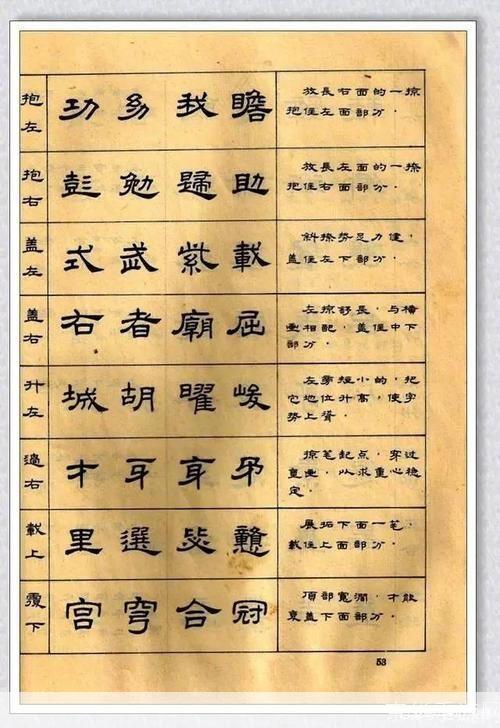 抱左 功 幼 我 瞻 放長右面的一掠，
抱住左面部分。
抱右 彭 勉 歸 助 放長左面的一捺，
抱住右面部分。
盖左 式 武 紫 載 斜捺势足力健，
盖住左下部分。
盖右 右 者 廟 屈 左掠舒長，与橫
相配，盖住中下
部分。
升左 城 胡 曜 峻 左旁短小的，把
它地位升高，使字
势上耸。
過右 才 牙 身 矛 掠笔起点，穿过
直，以求重心稳
定。
載上 里 選 戇 展拓下面一笔，
載住上面部分。
覆下 宫 穹 合 冠 頂部寬濶，才能
覆盖下面部分。
53